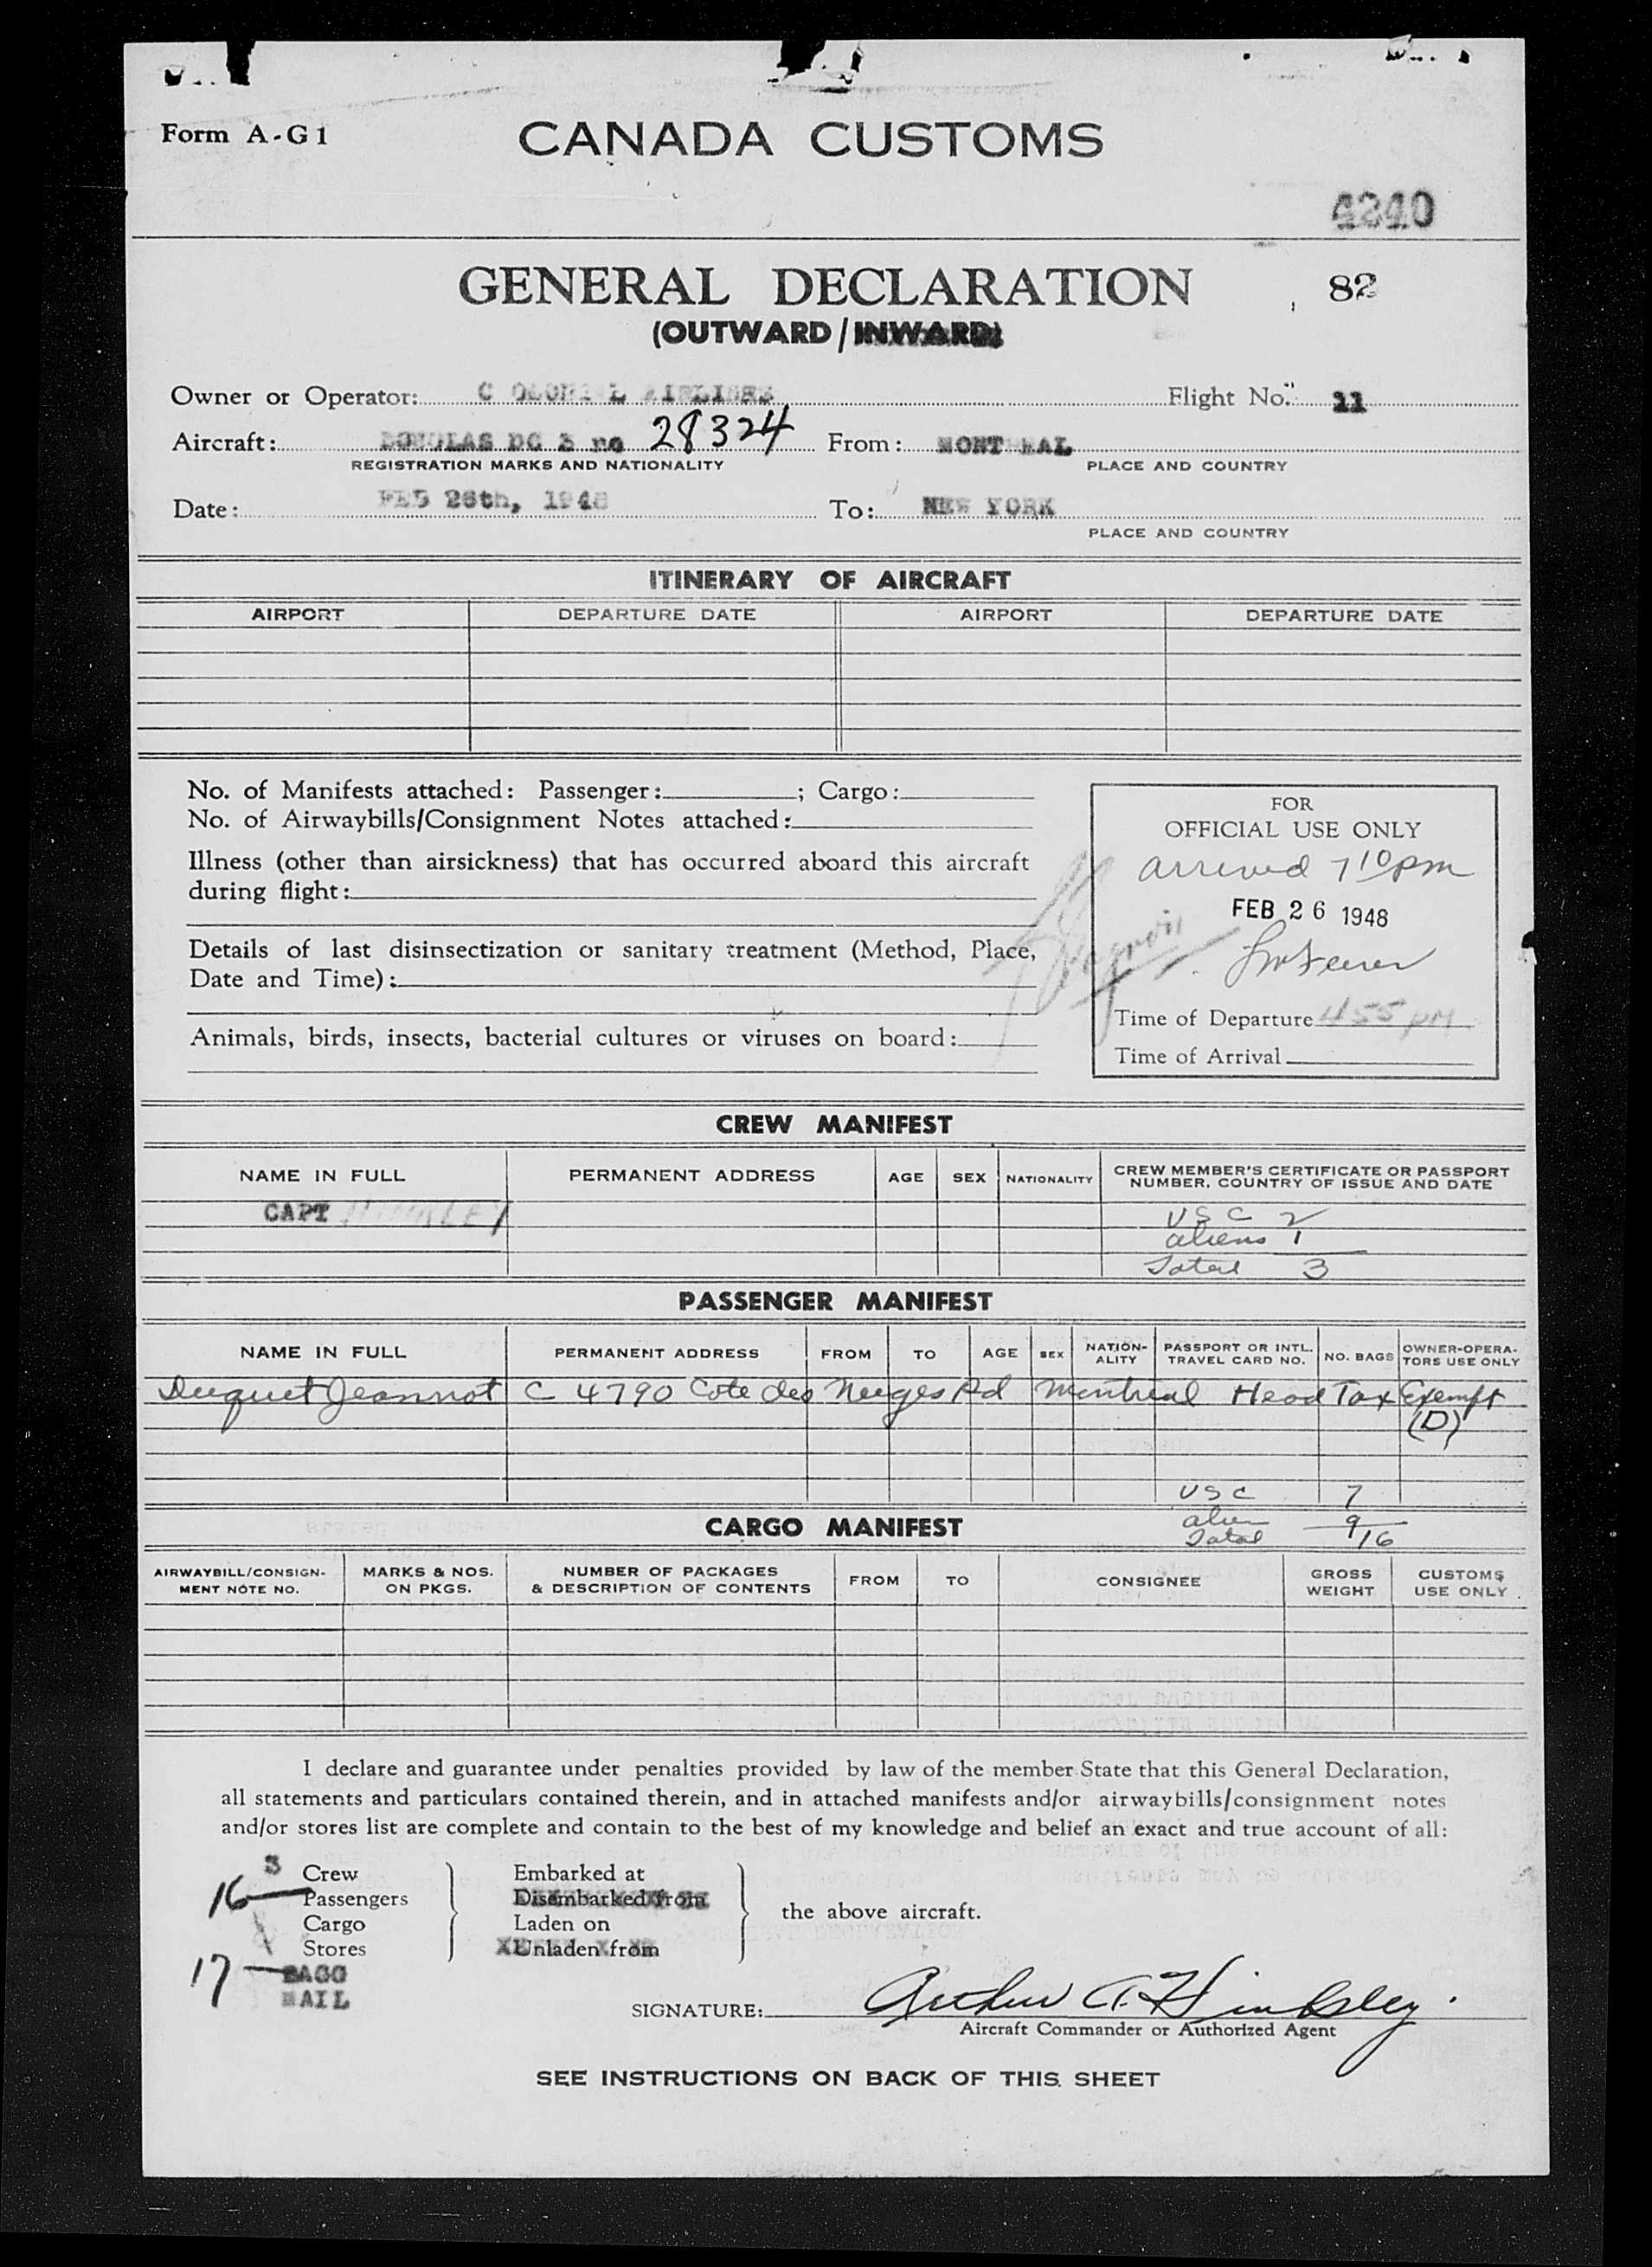 Form A-G1
CANADA CUSTOMS
4240
GENERAL DECLARATION
82
(OUTWARD / INWARD)
Owner or Operator: COLONIAL AIRLINES Flight No. 11
Aircraft: DOUGLAS DC 3 nc 28324 From: MONTREAL
REGISTRATION MARKS AND NATIONALITY PLACE AND COUNTRY
Date: FEB 26th, 1948 To: NEW YORK
PLACE AND COUNTRY
ITINERARY OF AIRCRAFT
AIRPORT DEPARTURE DATE AIRPORT DEPARTURE DATE
No. of Manifests attached: Passenger: ; Cargo:
No. of Airwaybills/Consignment Notes attached:
Illness (other than airsickness) that has occurred aboard this aircraft
during flight:
Details of last disinsectization or sanitary treatment (Method, Place,
Date and Time):
Animals, birds, insects, bacterial cultures or viruses on board:
FOR
OFFICIAL USE ONLY
arrived 7 10 pm
FEB 26 1948
Time of Departure 4 55 PM
Time of Arrival
CREW MANIFEST
NAME IN FULL PERMANENT ADDRESS AGE SEX NATIONALITY CREW MEMBER'S CERTIFICATE OR PASSPORT
NUMBER, COUNTRY OF ISSUE AND DATE
CAPT HINKLEY USC 2
aliens 1
Total 3
PASSENGER MANIFEST
NAME IN FULL PERMANENT ADDRESS FROM TO AGE SEX NATION-
ALITY PASSPORT OR INTL.
TRAVEL CARD NO. NO. BAGS OWNER-OPERA-
TORS USE ONLY
Duquet Jeannot C 4790 Cote des Neiges Rd Montreal Head Tax Exempt
(D)
USC 7
alien 9
Total 16
CARGO MANIFEST
AIRWAYBILL/CONSIGN-
MENT NOTE NO. MARKS & NOS.
ON PKGS. NUMBER OF PACKAGES
& DESCRIPTION OF CONTENTS FROM TO CONSIGNEE GROSS
WEIGHT CUSTOMS
USE ONLY
I declare and guarantee under penalties provided by law of the member State that this General Declaration,
all statements and particulars contained therein, and in attached manifests and/or airwaybills/consignment notes
and/or stores list are complete and contain to the best of my knowledge and belief an exact and true account of all:
3 Crew Embarked at
16 Passengers Disembarked from
Cargo Laden on the above aircraft.
Stores Unladen from
17 BAGG
MAIL
SIGNATURE: Arthur A. Hinkley
Aircraft Commander or Authorized Agent
SEE INSTRUCTIONS ON BACK OF THIS SHEET